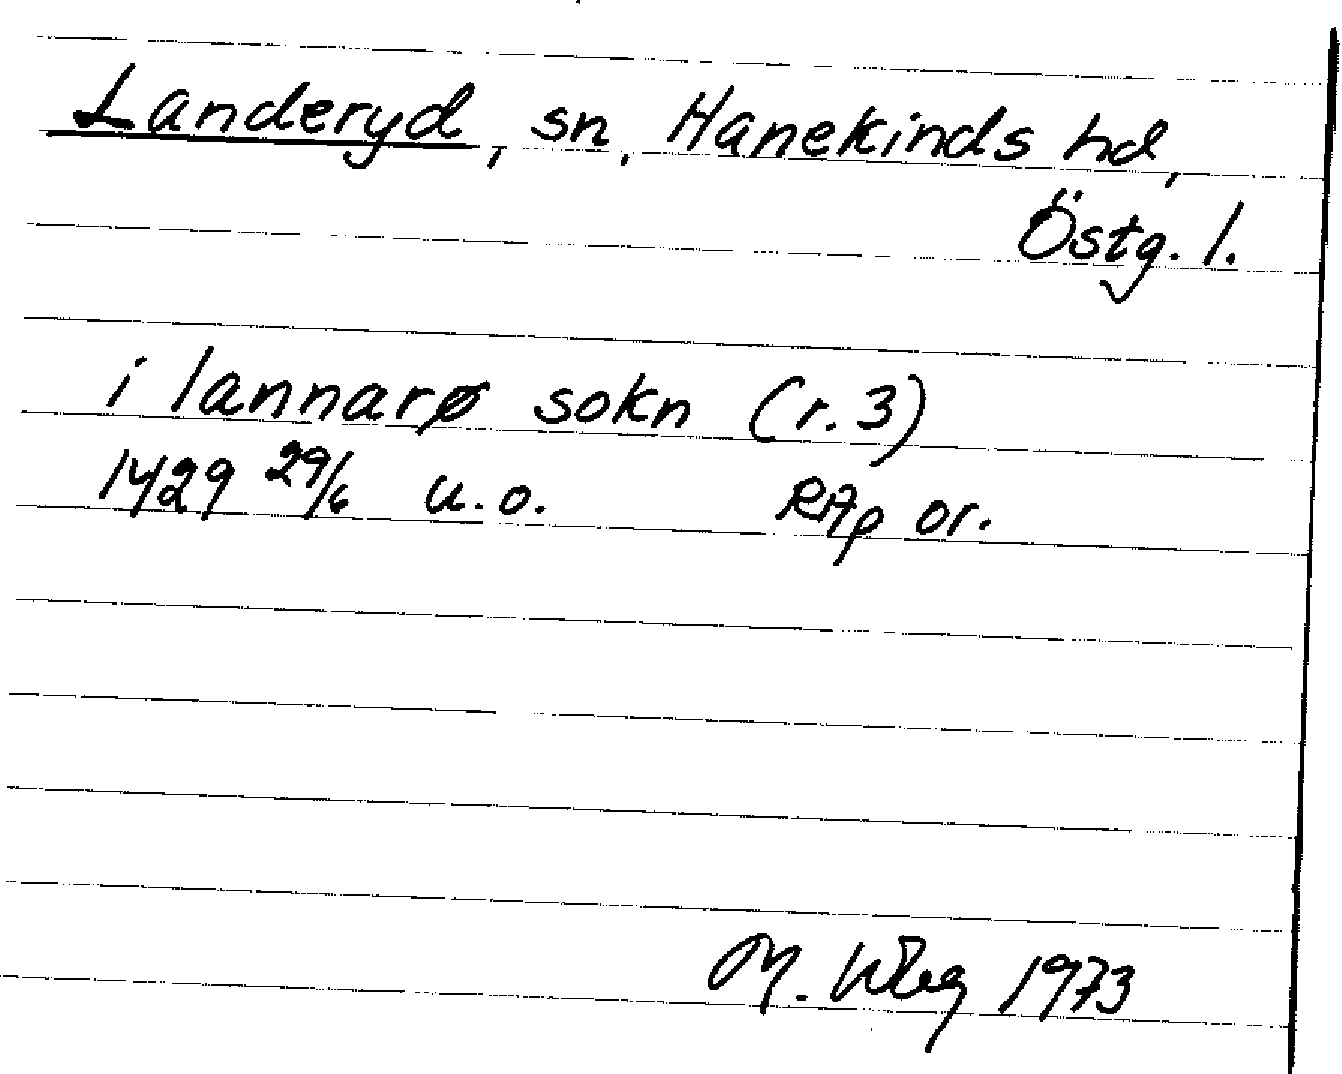 Landeryd, sn, Hanekinds hd,
Östg. l.
i lannarø sokn (r. 3)
1429 29/6 u.o. RAp or.
M. 1973